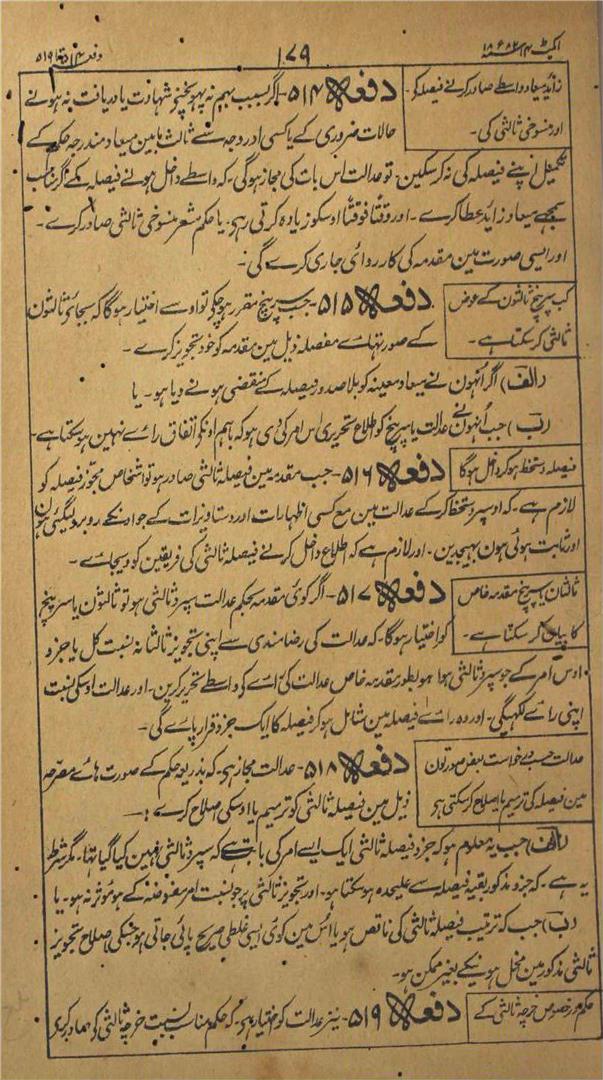 ایکٹ ۱۴ ۱۸۸۲ء
۱۷۹
دفعہ ۵۱۴ تا ۵۱۹
زائد میعاد واسطے صادر کرنے فیصلہ کے
اور منسوخی ثالثی کی۔
دفعہ ۵۱۴۔ اگر بسبب بہم نہ پہونچنے شہادت یا دریافت نہ ہونے
حالات ضروری کے یا کسی اور وجہ سے ثالث مابین میعاد مندرجہ حکم کے
تکمیل اپنے فیصلہ کی نہ کر سکین۔ تو عدالت اس بات کی مجاز ہوگی۔ کہ واسطے داخل ہونے فیصلہ کے اگر مناسب
سمجھے میعاد زائد عطا کرے۔ اور وقتاً فوقتاً اوسکو زیادہ کرتی رہے یا حکم مشعر منسوخی ثالثی صادر کرے۔
اور ایسی صورت مین مقدمہ کی کارروائی جاری کرے گی۔
کب سرپنچ ثالثون کے عوض
ثالثی کر سکتا ہے۔
دفعہ ۵۱۵۔ جب سرپنچ مقرر ہو چکے تو اوسے اختیار ہوگا کہ بجائے ثالثون
کے صورتہائے مفصلہ ذیل مین مقدمہ کو خود تجویز کرے۔
(الف) اگر اُنہون نے میعاد معینہ کو بلا صدور فیصلہ کے منقضی ہونے دیا ہو۔ یا
(ب) جب اُنہون نے عدالت یا سرپنچ کو اطلاع تحریری اس امر کی دی ہو کہ باہم اونکو اتفاق رائے نہین ہو سکتا ہے۔
فیصلہ دستخط ہوکر داخل ہوگا
دفعہ ۵۱۶۔ جب مقدمہ مین فیصلہ ثالثی صادر ہو تو اشخاص مجوز فیصلہ کو
لازم ہے۔ کہ اوسپر دستخط کرکے عدالت مین مع کسی اظہارات اور دستاویزات کے جو اونکے روبرو لیگئی ہون
اور ثابت ہوئی ہون بھیجدین۔ اور لازم ہے کہ اطلاع داخل کرنے فیصلہ ثالثی کی فریقین کو دیجائے۔
ثالثان یا سرپنچ مقدمہ خاص
کا بیان کر سکتا ہے۔
دفعہ ۵۱۷۔ اگر کوئی مقدمہ بحکم عدالت سپرد ثالثی ہو تو ثالثون یا سرپنچ
کو اختیار ہوگا۔ کہ عدالت کی رضامندی سے اپنی تجویز ثالثانہ نسبت کل یا جزو
اوس امر کے جو سپرد ثالثی ہوا ہو بطور مقدمہ خاص عدالت کی رائے کے واسطے تحریر کرین۔ اور عدالت اوسکی نسبت
اپنی رائے لکھیگی۔ اور وہ رائے فیصلہ مین شامل ہوکر فیصلہ کا ایک جزو قرار پائے گی۔
عدالت حسب درخواست بعض صورتون
مین فیصلہ کی ترمیم یا اصلاح کر سکتی ہے
دفعہ ۵۱۸۔ عدالت مجاز ہے کہ بذریعہ حکم کے صورت ہائے مصرحہ
ذیل مین فیصلہ ثالثی کو ترمیم یا اوسکی اصلاح کرے:۔
(الف) جب یہ معلوم ہو کہ جزو فیصلہ ثالثی ایک ایسے امر کی بابت ہے کہ سپرد ثالثی نہین کیا گیا تھا۔ مگر شرط
یہ ہے۔ کہ جزو مذکور بقیہ فیصلہ سے علیحدہ ہو سکتا ہو۔ اور تجویز ثالثی پر جو نسبت امر مفوضہ کے ہو مؤثر نہ ہو۔ یا
(ب) جب کہ ترتیب فیصلہ ثالثی کی ناقص ہو یا اُس مین کوئی ایسی غلطی صریح پائی جاتی ہو جسکی اصلاح تجویز
ثالثی مذکور مین مخل ہونیکے بغیر ممکن ہو۔
حکم در خصوص خرچہ ثالثی کے
دفعہ ۵۱۹۔ نیز عدالت کو اختیار ہے۔ کہ حکم مناسب نسبت خرچہ ثالثی کے صادر کرے